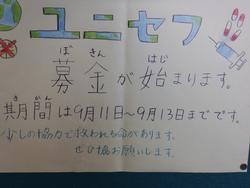 ユニセフ
ぼ きん はじ
募金が始まります。
期間は9月11日～9月13日までです。
少しの協力で救われる命があります。
ぜひ協お願いします。